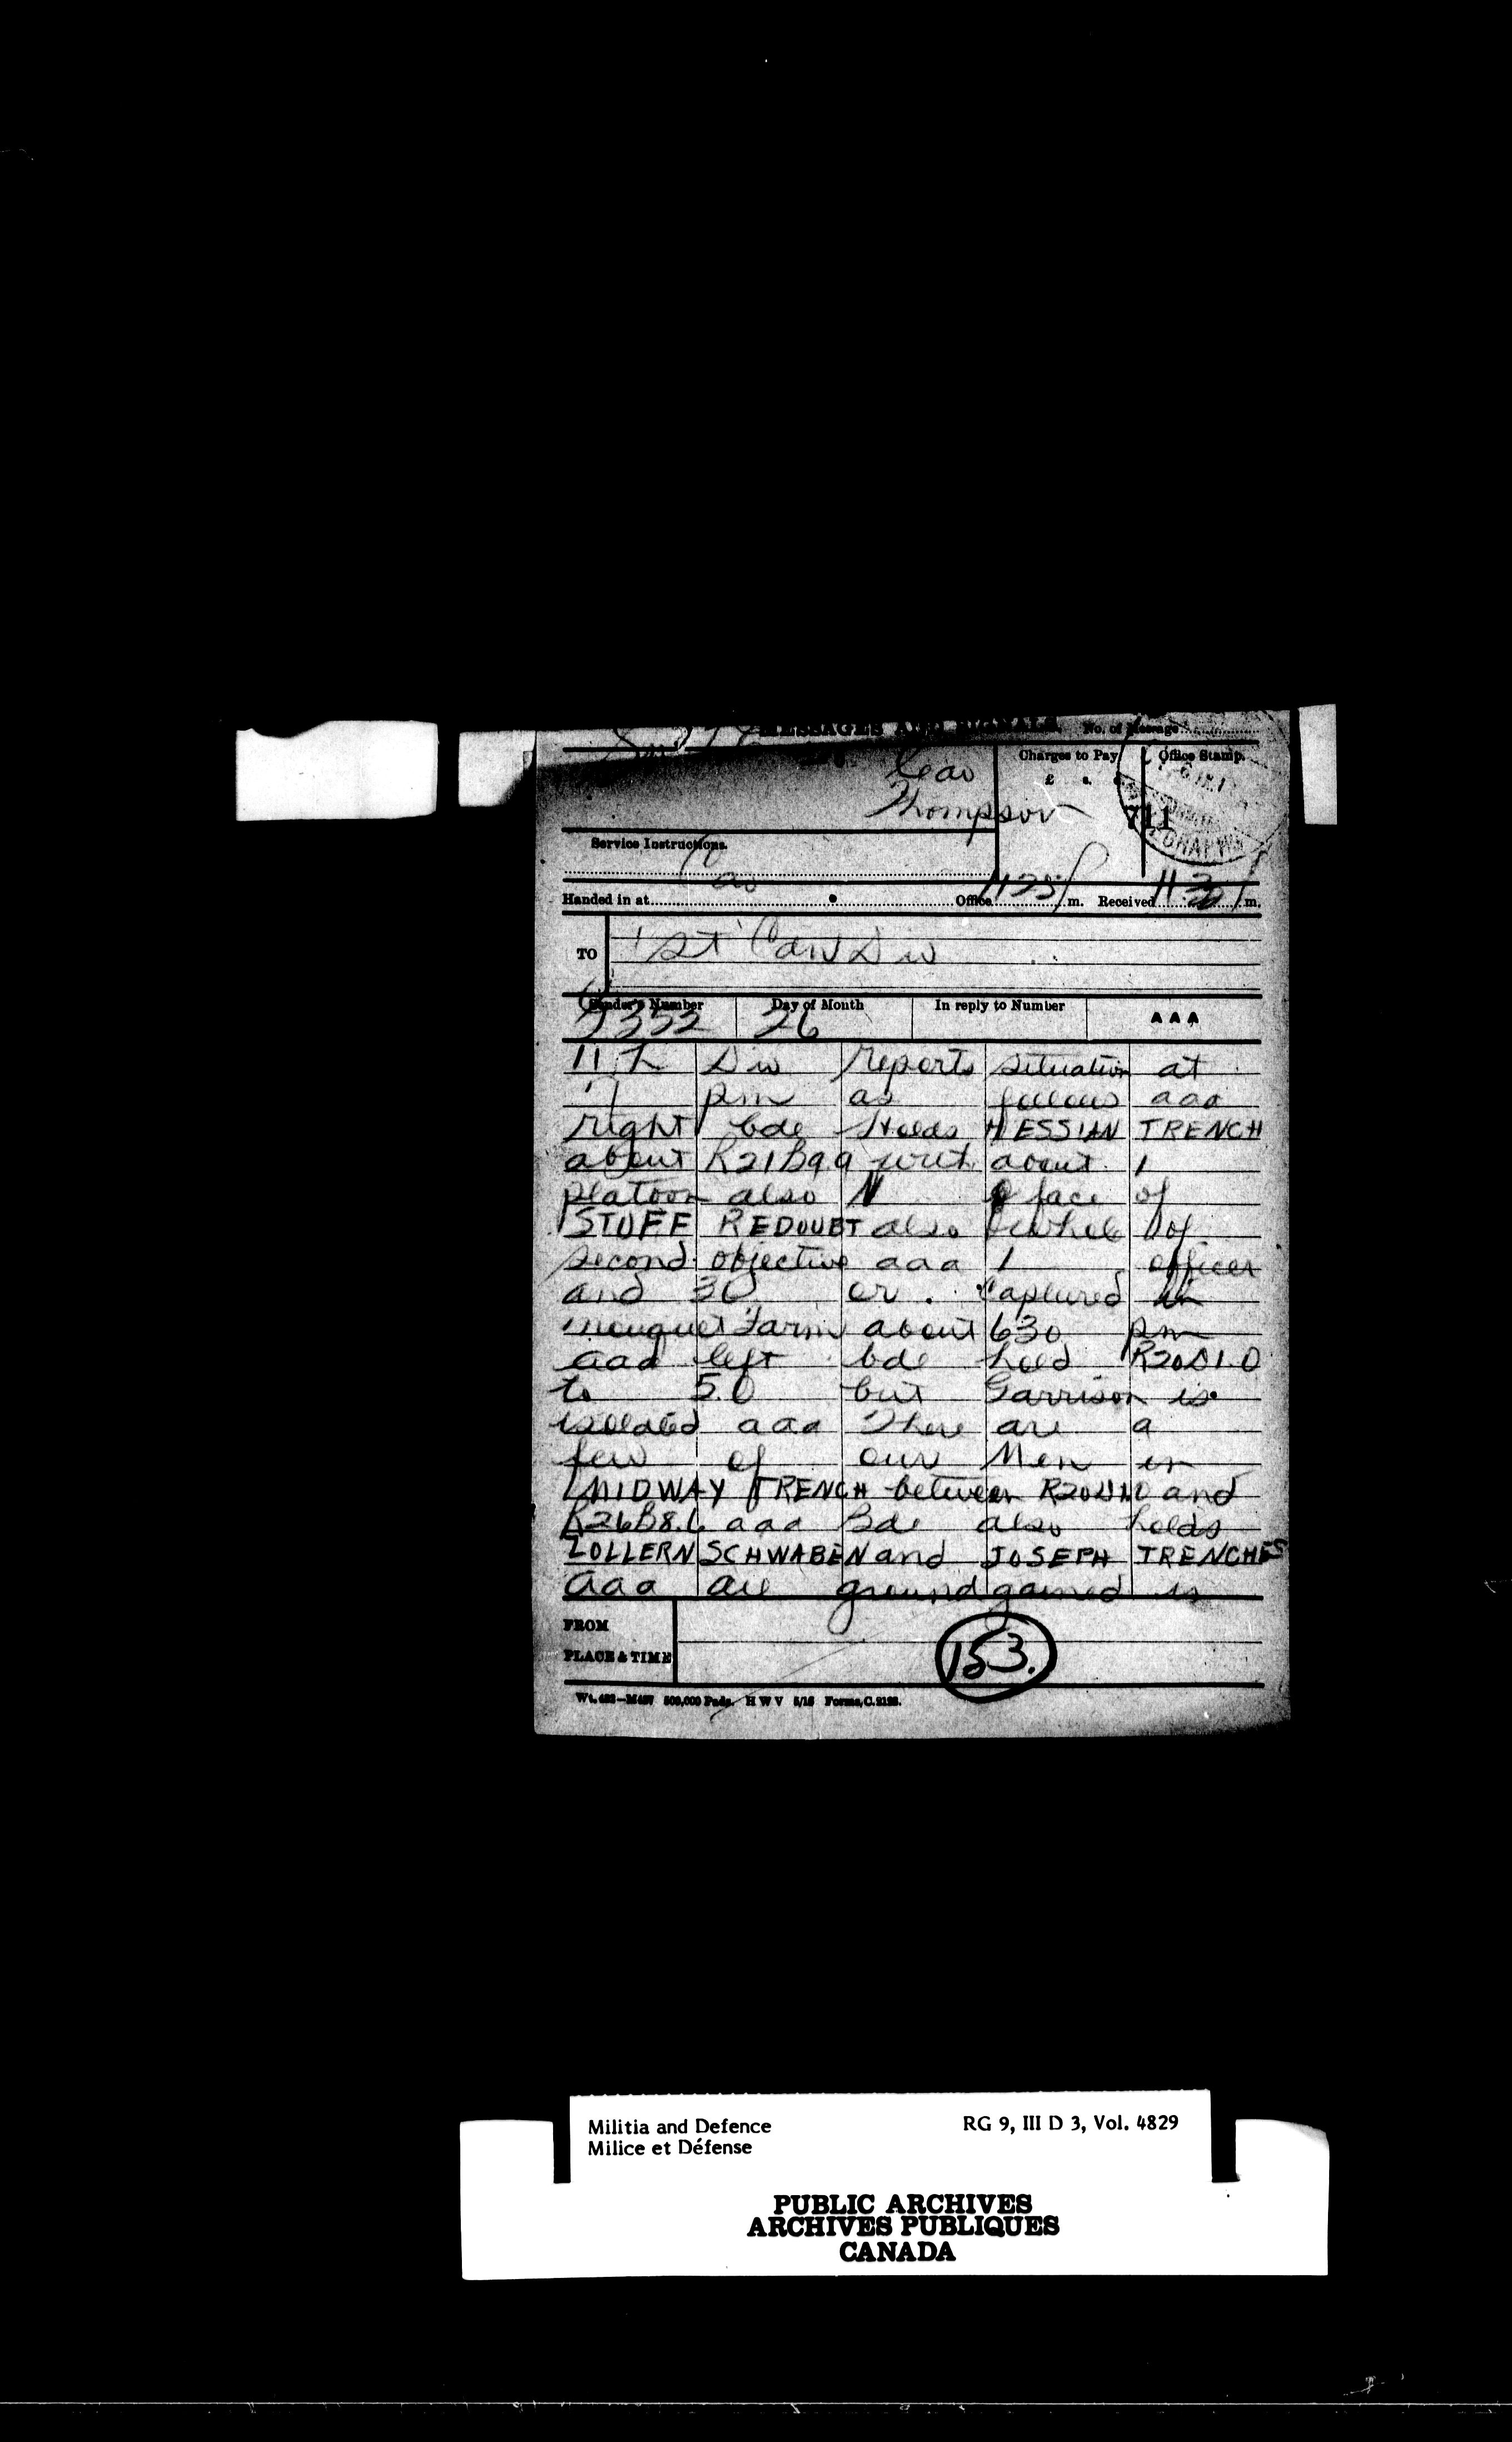 MESSAGES AND SIGNALS. No. of Message
Cav
Charges to Pay
Office Stamp.
£ s. d.
Thompson
711
GRAPHS
Service Instructions.
Cav
Handed in at Office 1125 p m. Received m.
TO 1st Can Div
Sender's Number Day of Month In reply to Number AAA
352 26
11th Div reports situation at
7 pm as follows aaa
right bde Holds HESSIAN TRENCH
about R21B9.9 with about 1
platoon also N face of
STUFF REDOUBT also whole of
second objective aaa 1 officer
and 30 or. captured in
mouquet Farm about 630 pm
aaa left bde held R20D1.0
to 5.0 but Garrison is
isolated aaa There are a
few of our Men in
MIDWAY TRENCH between R20D1.0 and
R26B8.6 aaa Bde also holds
ZOLLERN SCHWABEN and JOSEPH TRENCHES
aaa all ground gained is
FROM
PLACE & TIME
153.
500,000 Pads. H W V 5/16 Forms, C.2123.
Militia and Defence
Milice et Défense
RG 9, III D 3, Vol. 4829
PUBLIC ARCHIVES
ARCHIVES PUBLIQUES
CANADA